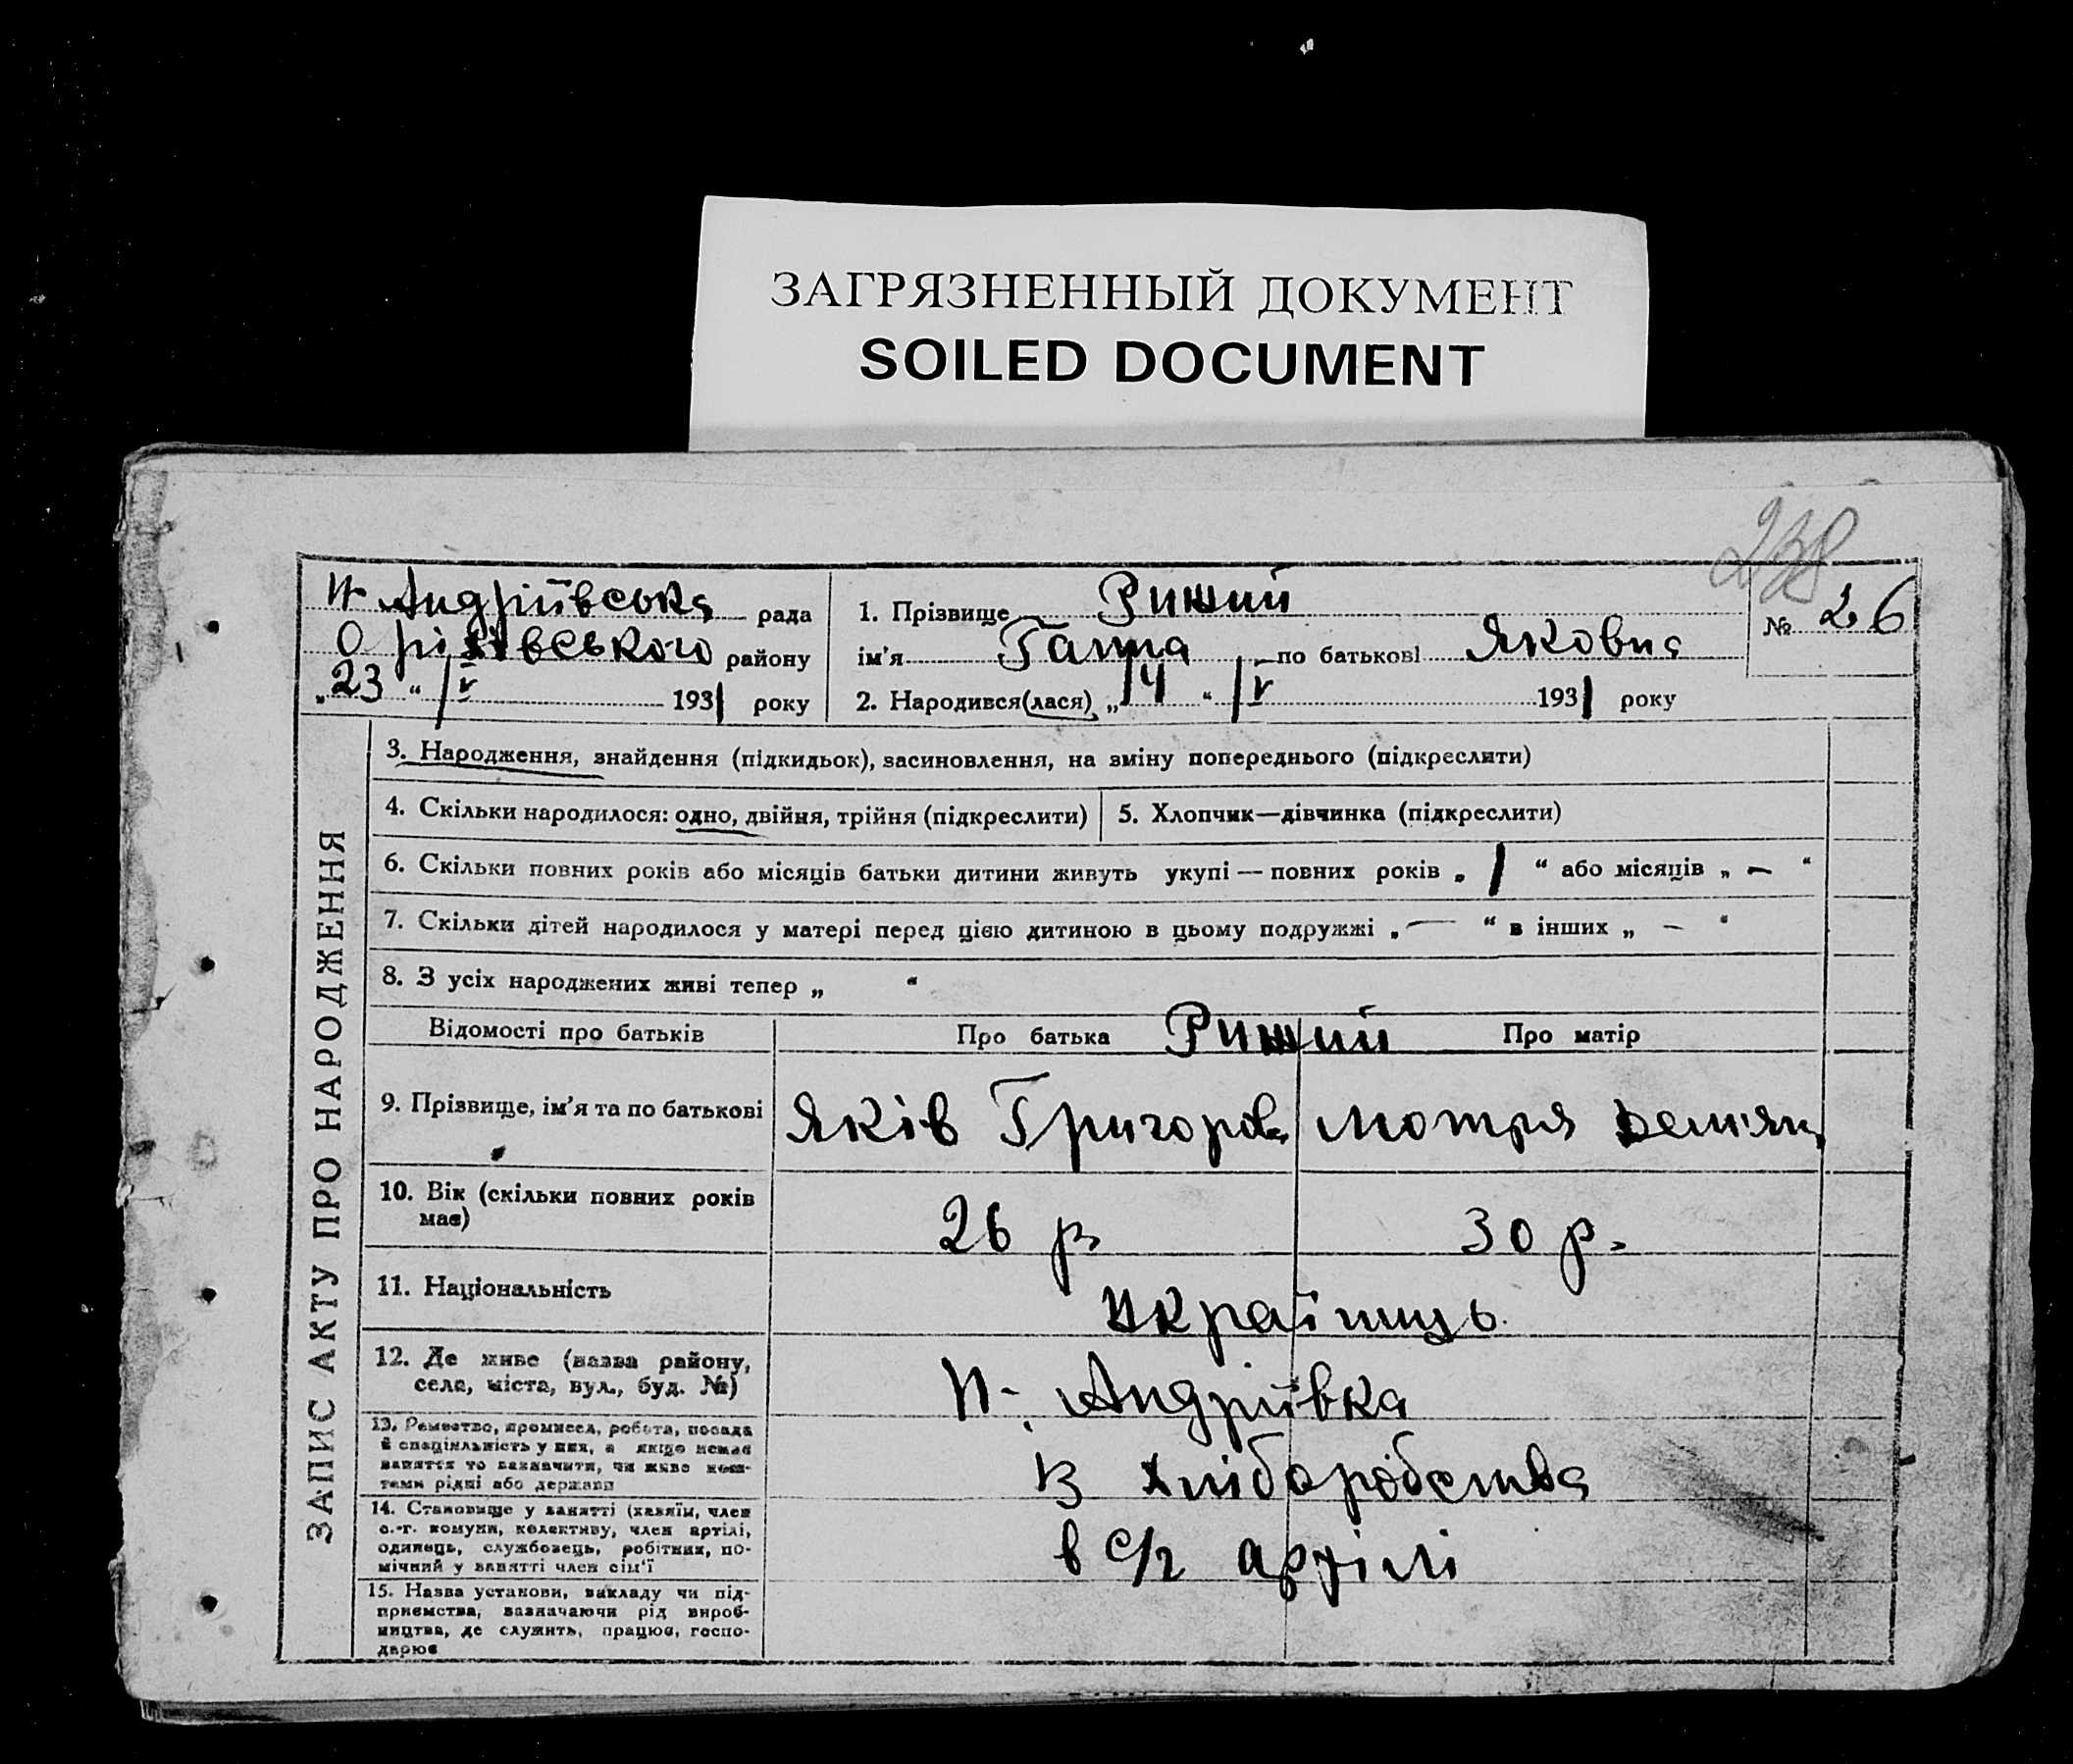 ЗАГРЯЗНЕННЫЙ ДОКУМЕНТ
SOILED DOCUMENT
238
Н-Андріївська рада
Оріхівського району
„23“ /V 1931 року
1. Прізвище Рижий
ім'я Ганна по батькові Яковна
2. Народився(лася) „14“ /V 1931 року
№ 26
ЗАПИС АКТУ ПРО НАРОДЖЕННЯ
3. Народження, знайдення (підкидьок), засиновлення, на зміну попереднього (підкреслити)
4. Скільки народилося: одно, двійня, трійня (підкреслити)
5. Хлопчик—дівчинка (підкреслити)
6. Скільки повних років або місяців батьки дитини живуть укупі — повних років „ 1 “ або місяців „ — “
7. Скільки дітей народилося у матері перед цією дитиною в цьому подружжі „ — “ в інших „ — “
8. З усіх народжених живі тепер „ “
Відомості про батьків Про батька Рижий Про матір
9. Прізвище, ім'я та по батькові Яків Григоров. Мотря Дем'ян
10. Вік (скільки повних років має) 26 р. 30 р.
11. Національність Українць
12. Де живе (назва району, села, міста, вул., буд. №) Н-Андріївка
13. Ремество, промисел, робота, посада й спеціяльність у них, а якщо немає заняття то зазначити, чи живе коштами рідні або держави
Із хліборобства
14. Становище у занятті (хазяїн, член с.-г. комуни, колективу, член артілі, одинець, службовець, робітник, помічний у занятті член сім'ї
в с/г артілі
15. Назва установи, закладу чи підприємства, зазначаючи рід виробництва, де служить, працює, господарює